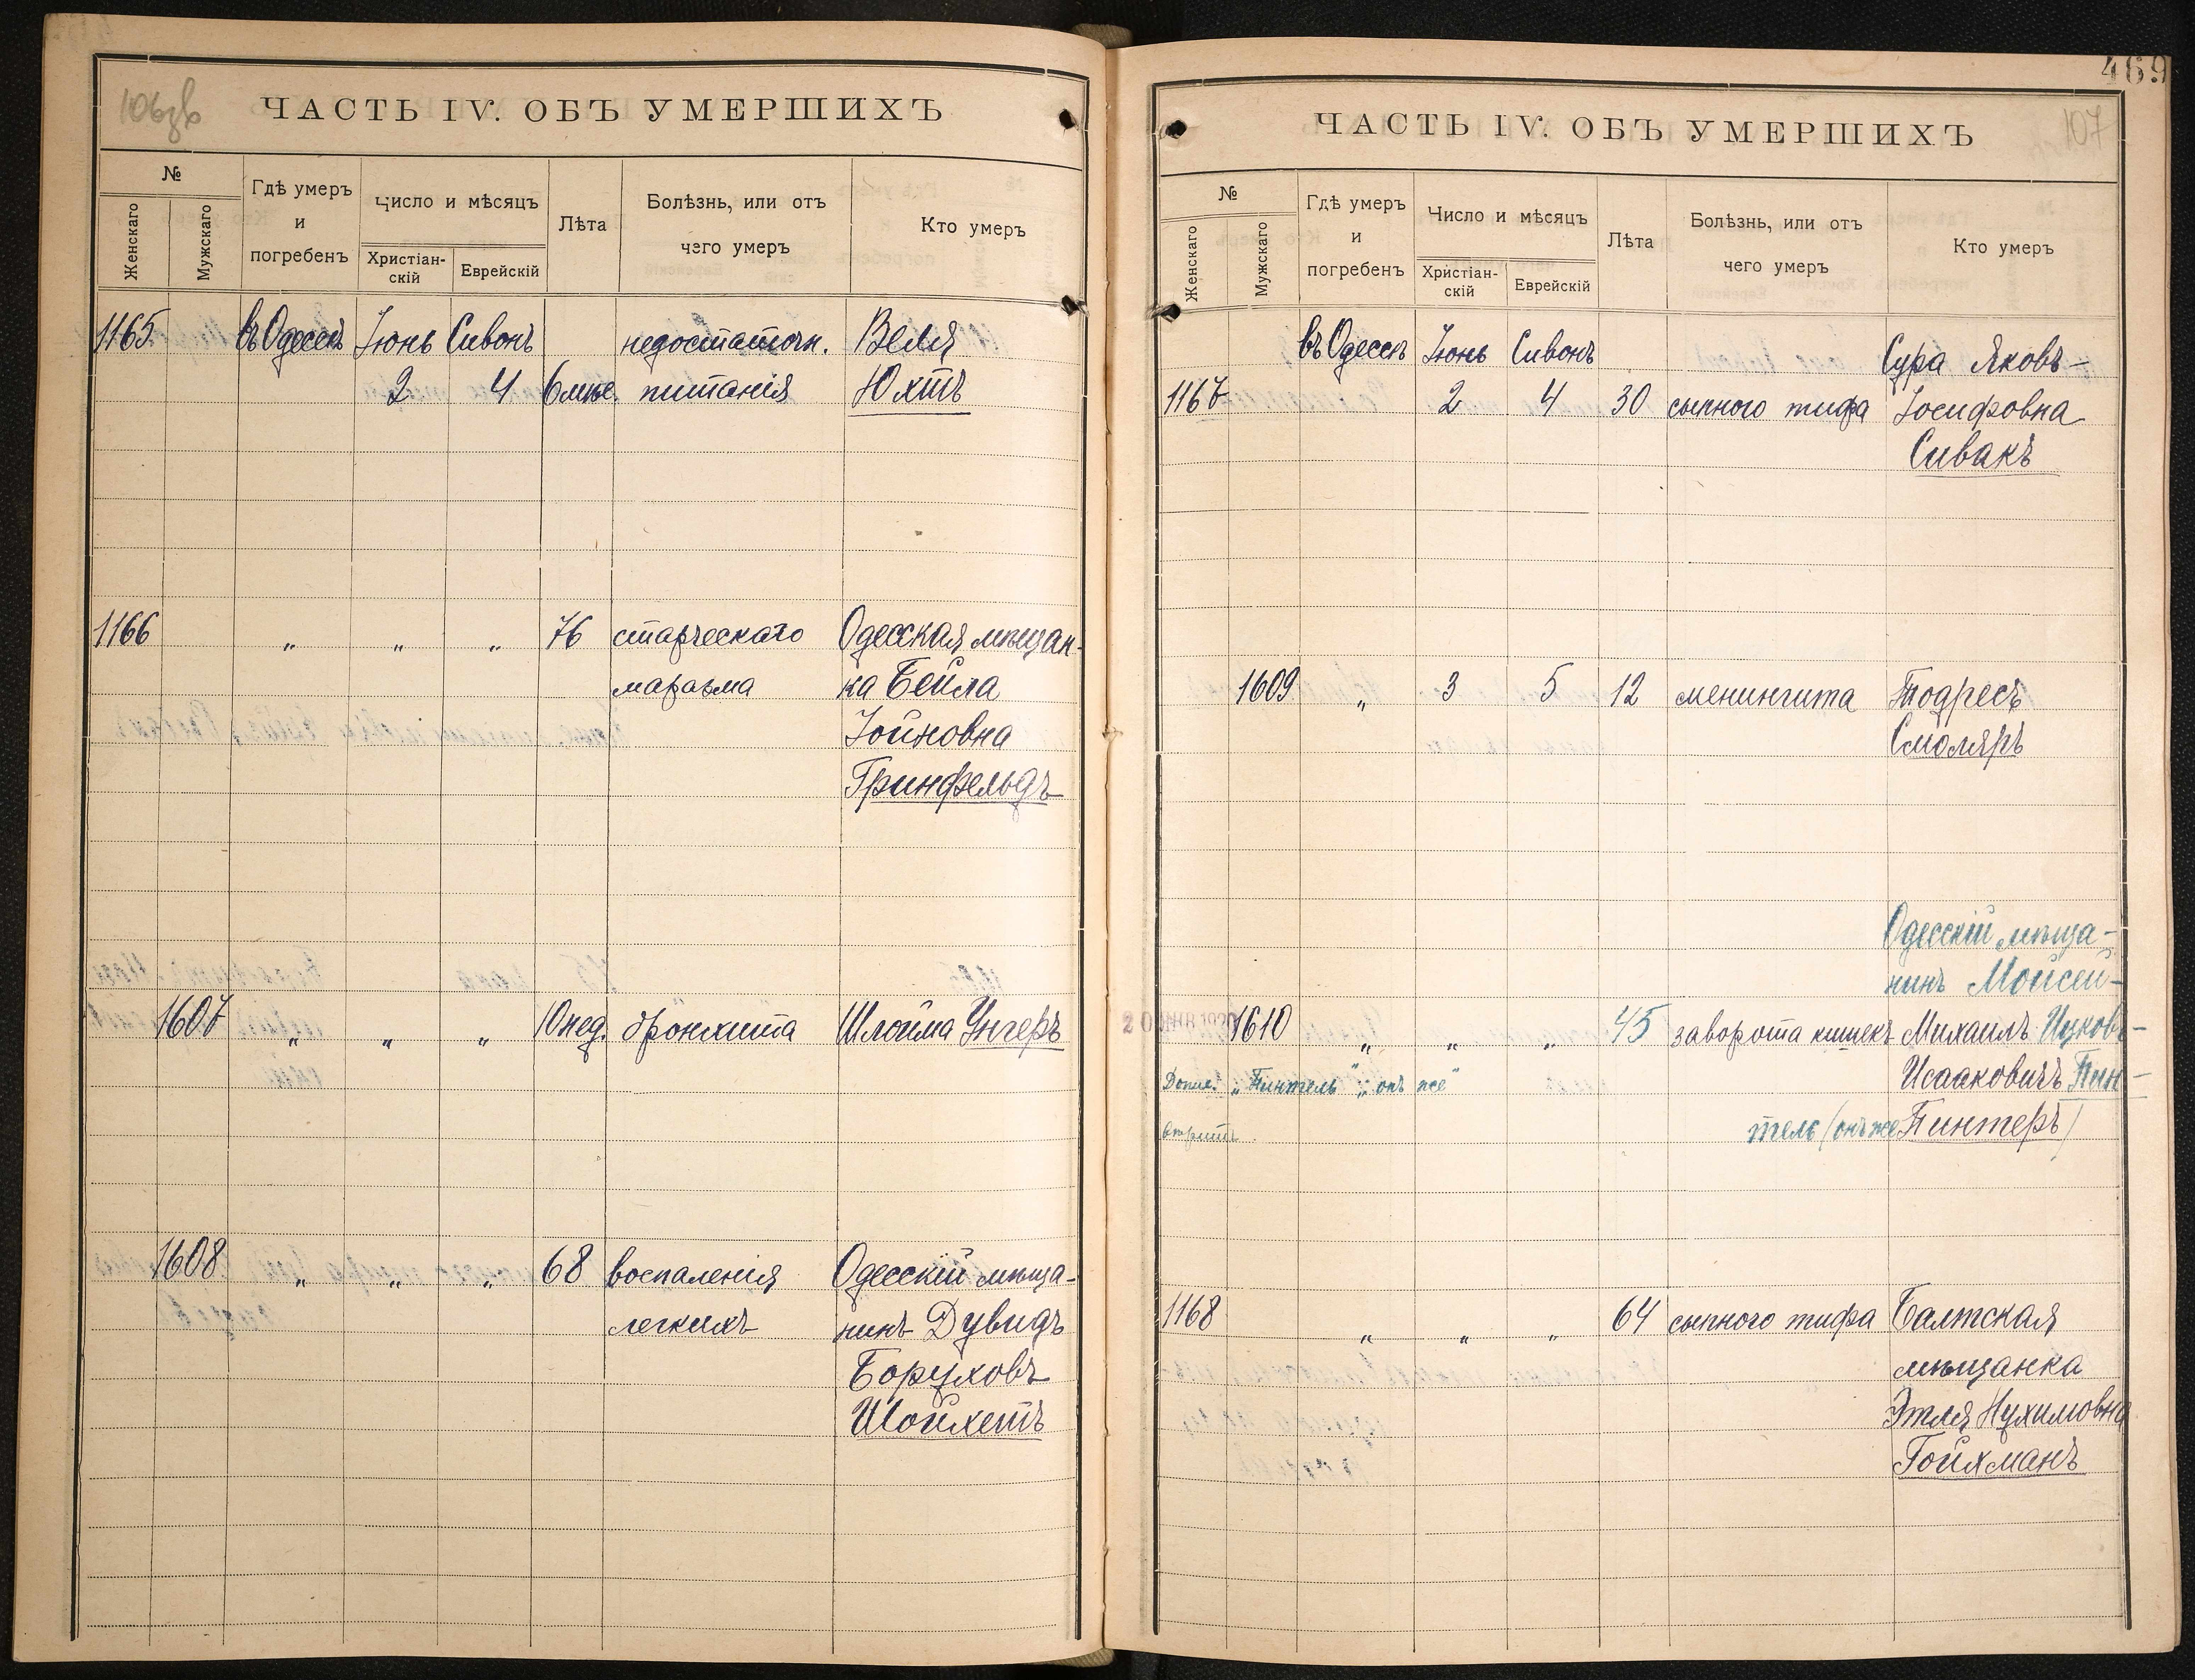 106зв
ЧАСТЬ IV. ОБЪ УМЕРШИХЪ
№
Женскаго
Мужскаго
Гдѣ умеръ и погребенъ
Число и мѣсяцъ
Христіан-скій
Еврейскій
Лѣта
Болѣзнь, или отъ чего умеръ
Кто умеръ
1165. въ Одессѣ Іюнь Сивонъ недостаточн. Веля
2 4 6 мѣс. питанія Юхтъ
1166 „ „ „ 76 старческаго Одесская мѣщан-
маразма ка Бейла
Іойновна
Гринфельдъ
1607 „ „ „ 10 нед. бронхита Шлойма Унгеръ
1608 „ „ „ 68 воспаленія Одесскій мѣща-
легкихъ нинъ Дувидъ
Боруховъ
Шойхетъ
469
107
ЧАСТЬ IV. ОБЪ УМЕРШИХЪ
№
Женскаго
Мужскаго
Гдѣ умеръ и погребенъ
Число и мѣсяцъ
Христіан-скій
Еврейскій
Лѣта
Болѣзнь, или отъ чего умеръ
Кто умеръ
въ Одессѣ Іюнь Сивонъ Сура Яковъ-
1167 2 4 30 сыпного тифа Іосифовна
Сивакъ
1609 „ 3 5 12 менингита Тодресъ
Смоляръ
Одесскій мѣща-
нинъ Мойсей-
1610 „ „ „ 45 заворота кишекъ Михаилъ Ицковъ-
Исааковичъ Пин-
Допис. „Пинтель“ „онъ же“
тель (онъ же Пинтеръ)
1168 „ „ „ 64 сыпного тифа Балтская
мѣщанка
Этля Нухимовна
Гойхманъ